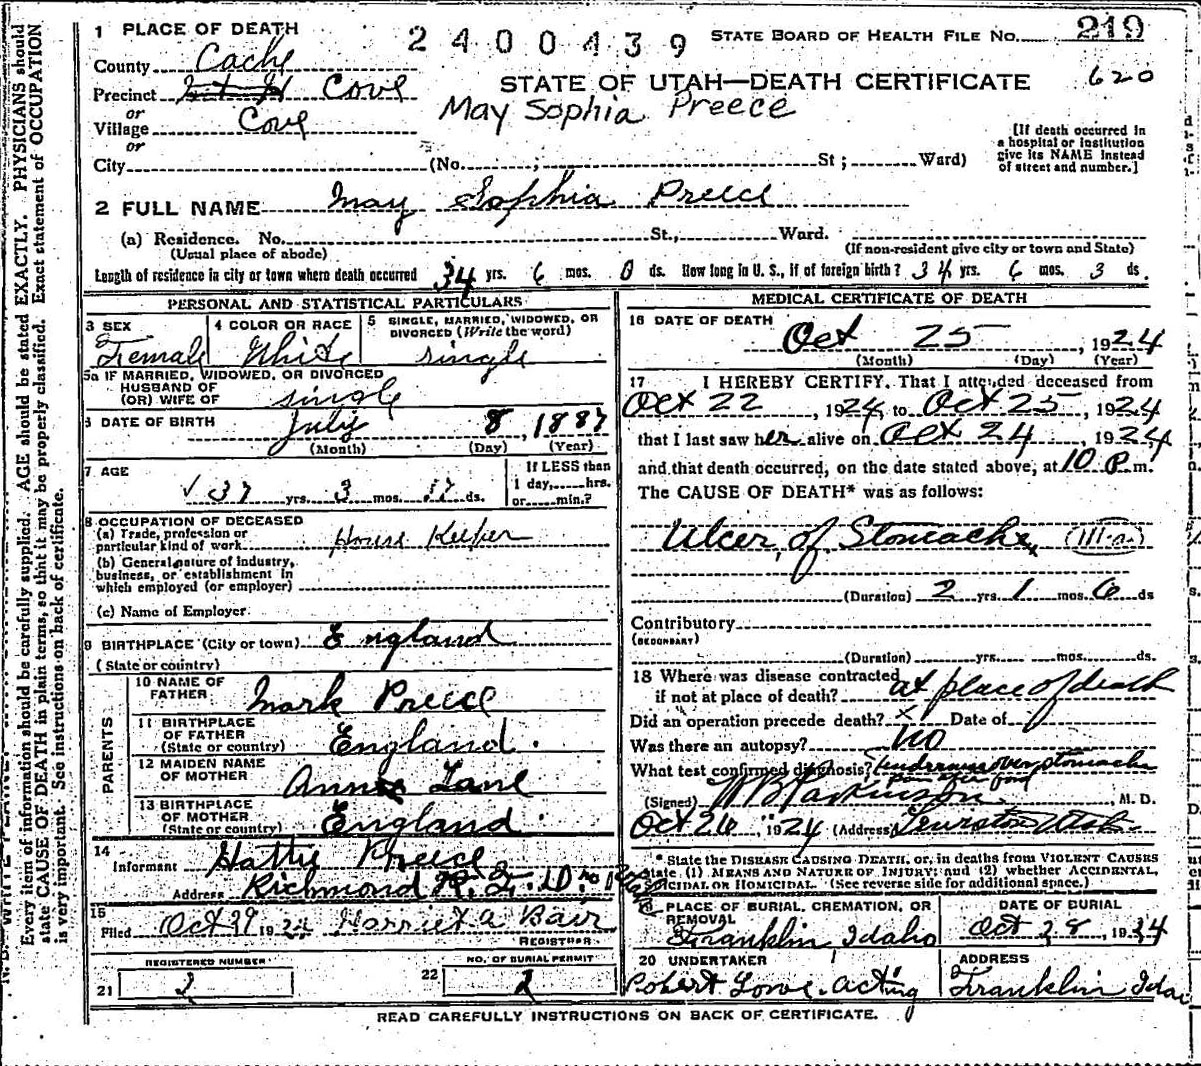 1 PLACE OF DEATH
2400439
STATE BOARD OF HEALTH FILE No. 219
County Cache
STATE OF UTAH—DEATH CERTIFICATE 620
Precinct Cove
May Sophia Preece
or
Village Cove
or
City (No. ; St ; Ward)
[If death occurred in
a hospital or institution
give its NAME instead
of street and number.]
2 FULL NAME May Sophia Preece
(a) Residence. No. St., Ward.
(Usual place of abode) (If non-resident give city or town and State)
Length of residence in city or town where death occurred 34 yrs. 6 mos. 0 ds. How long in U. S., if of foreign birth? 34 yrs. 6 mos. 3 ds.
PERSONAL AND STATISTICAL PARTICULARS
3 SEX
Female
4 COLOR OR RACE
White
5 SINGLE, MARRIED, WIDOWED, OR
DIVORCED (Write the word)
single
5a IF MARRIED, WIDOWED, OR DIVORCED
HUSBAND OF
(OR) WIFE OF single
6 DATE OF BIRTH July 8, 1887
(Month) (Day) (Year)
7 AGE
37 yrs. 3 mos. 17 ds.
If LESS than
1 day, hrs.
or min.?
8 OCCUPATION OF DECEASED
(a) Trade, profession or
particular kind of work House Keeper
(b) General nature of industry,
business, or establishment in
which employed (or employer)
(c) Name of Employer
9 BIRTHPLACE (City or town) England
(State or country)
PARENTS
10 NAME OF
FATHER Mark Preece
11 BIRTHPLACE
OF FATHER
(State or country) England
12 MAIDEN NAME
OF MOTHER Annie Lane
13 BIRTHPLACE
OF MOTHER
(State or country) England
14
Informant Hattie Preece
Address Richmond R. F. D. No 1
15
Filed Oct 29 1924 Harriet A Bair
REGISTRAR
21 REGISTERED NUMBER
2
22 NO. OF BURIAL PERMIT
2
MEDICAL CERTIFICATE OF DEATH
16 DATE OF DEATH
Oct 25, 1924
(Month) (Day) (Year)
17 I HEREBY CERTIFY, That I attended deceased from
Oct 22, 1924, to Oct 25, 1924
that I last saw her alive on Oct 24, 1924,
and that death occurred, on the date stated above, at 10 P m.
The CAUSE OF DEATH* was as follows:
Ulcer of Stomache (111-a)
(Duration) 2 yrs. 1 mos. 6 ds
Contributory
(SECONDARY)
(Duration) yrs. mos. ds.
18 Where was disease contracted
if not at place of death? at place of death
Did an operation precede death? X Date of
Was there an autopsy? No
What test confirmed diagnosis? over stomache
(Signed) W B Parkinson, M. D.
Oct 26, 1924 (Address)
* State the DISEASE CAUSING DEATH, or, in deaths from VIOLENT CAUSES
state (1) MEANS AND NATURE OF INJURY; and (2) whether ACCIDENTAL,
SUICIDAL OR HOMICIDAL. (See reverse side for additional space.)
19 PLACE OF BURIAL, CREMATION, OR
REMOVAL
Franklin Idaho
DATE OF BURIAL
Oct 28, 1924
20 UNDERTAKER
Robert Lowe. acting
ADDRESS
Franklin Idaho
READ CAREFULLY INSTRUCTIONS ON BACK OF CERTIFICATE.
Every item of information should be carefully supplied. AGE should be stated EXACTLY. PHYSICIANS should
state CAUSE OF DEATH in plain terms, so that it may be properly classified. Exact statement of OCCUPATION
is very important. See instructions on back of certificate.